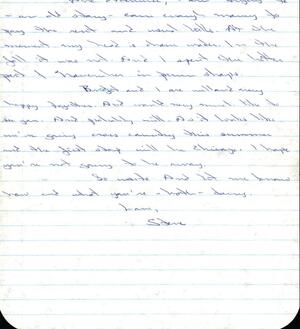 - an old story - earn enough money to
pay the rent and meet bills. At the
moment my head is above water. In the
fall it was not. And I spent the better
part of November in poor shape.
Bridget and I are well and very
happy together. And would very much like to
see you. And probably will. As it looks like
we're going cross country this summer
and the first stop will be Chicago. I hope
you're not going to be away.
So write. And let me know
how and what you're - both - doing.
Love,
Steve